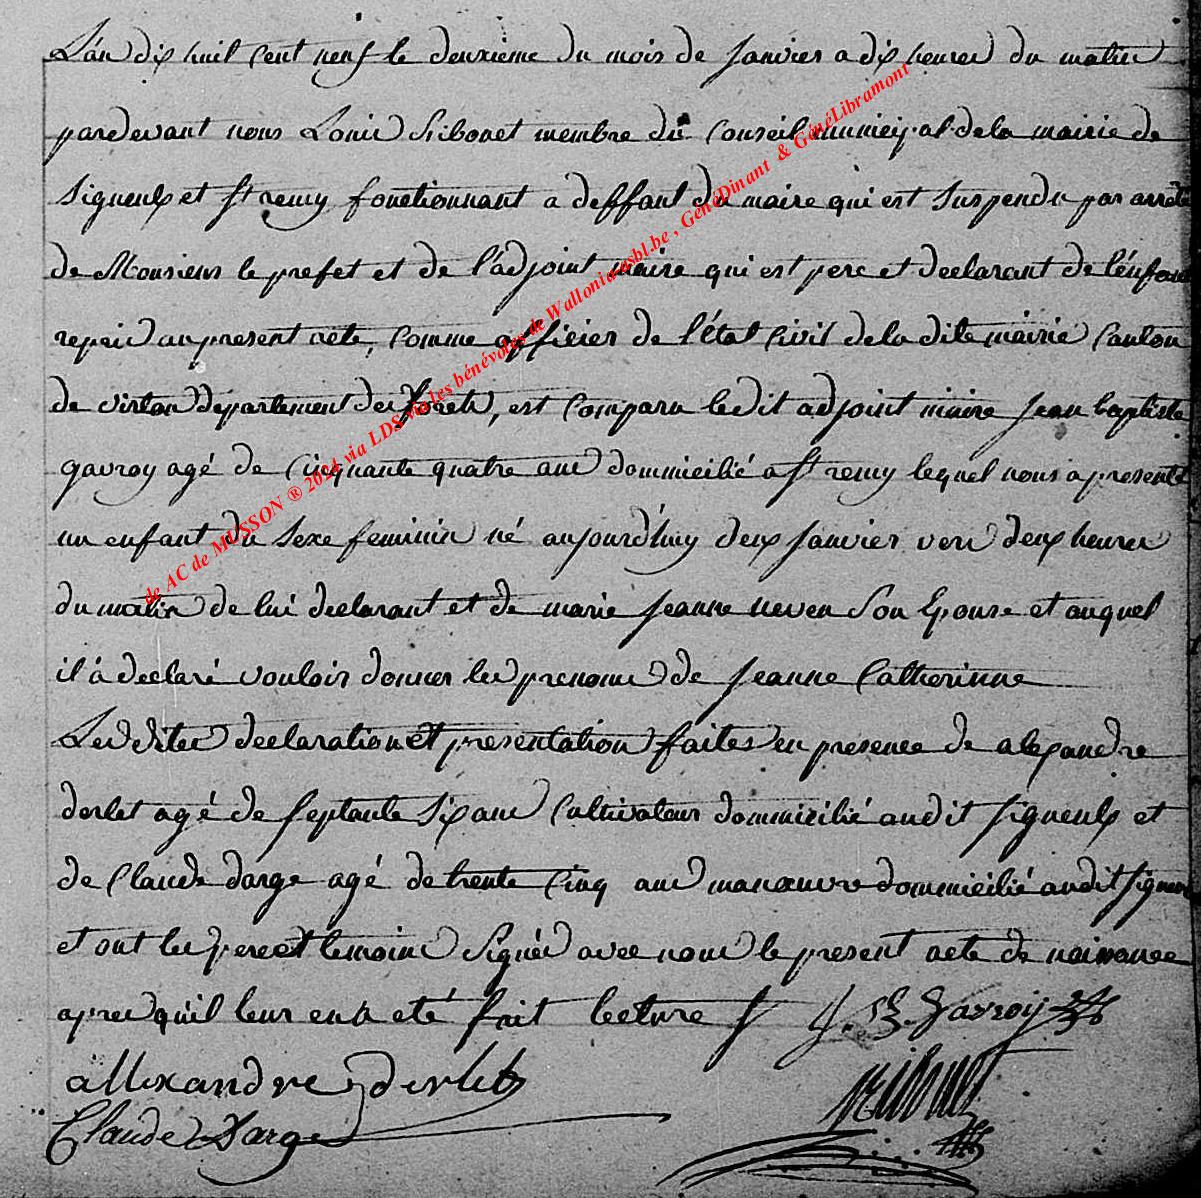 L'an dix huit cent neuf le deuxieme du mois de Janvier a dix heures du matin
pardevant nous Louis Ribonet membre du Conseil municipal de la mairie de
Signeulx et St remy fonctionnant a deffaut du maire qui est suspendu par arreté
de Monsieur le prefet et de l'adjoint maire qui est pere et declarant de l'enfant
repris au present acte, comme officier de l'état civil de la dite mairie Canton
de virton departement des forets, est comparu ledit adjoint maire Jean baptiste
gavroy agé de Cinquante quatre ans dommicilié a St remy lequel nous a presenté
un enfant du sexe feminin né aujourd'huy deux Janvier vers deux heures
du matin de lui declarant et de marie Jeanne neven son Epouse et auquel
il a declaré vouloir donner les prenoms de Jeanne Catherinne
Lesdites declaration et presentation faites en presence de alexandre
derlet agé de septante six ans Cultivateur dommicilié audit signeulx et
de Claude darge agé de trente Cinq ans manoeuvre dommicilié audit
et ont les pere et temoins signés avec nous le present acte de naissance
apres qu'il leur en a eté fait lecture J. B. Gavroij
allexandre derlet
Claude Darge
de AC de MUSSON ® 2024 via LDS via les bénévoles de Wallonia asbl.be , GenéDinant & GénéLibramont